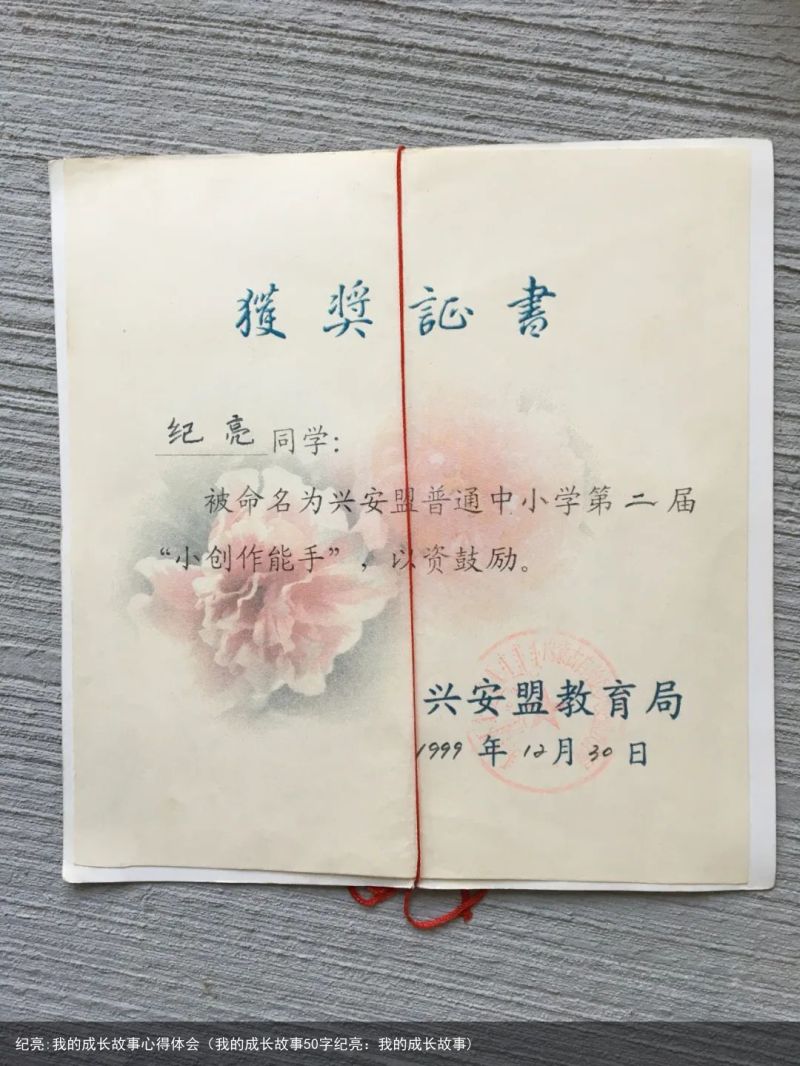 獲奖証書
纪亮同学：
被命名为兴安盟普通中小学第二届
“小创作能手”，以资鼓励。
兴安盟教育局
1999年12月30日
纪亮:我的成长故事心得体会（我的成长故事50字纪亮：我的成长故事）